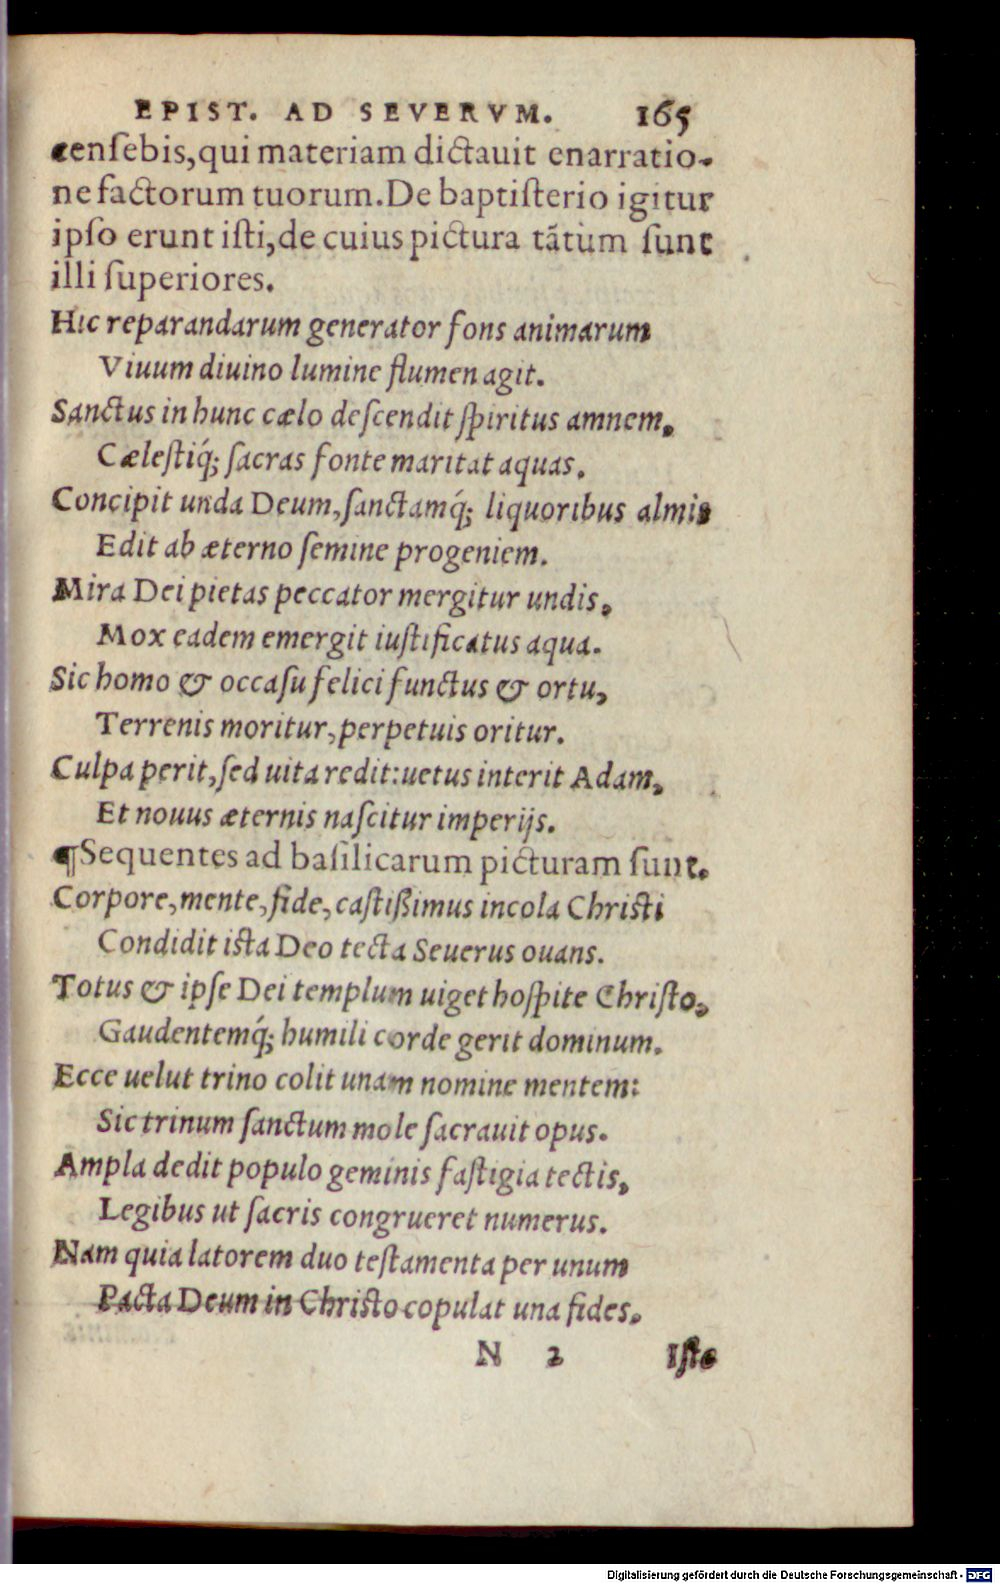 EPIST. AD SEVERVM. 165
censebis,qui materiam dictauit enarratio-
ne factorum tuorum.De baptisterio igitur
ipso erunt isti,de cuius pictura tātum sunt
illi superiores.
Hic reparandarum generator fons animarum
Viuum diuino lumine flumen agit.
Sanctus in hunc cælo descendit spiritus amnem,
Cælestiq́; sacras fonte maritat aquas.
Concipit unda Deum,sanctamq́; liquoribus almis
Edit ab æterno semine progeniem.
Mira Dei pietas peccator mergitur undis,
Mox eadem emergit iustificatus aqua.
Sic homo & occasu felici functus & ortu,
Terrenis moritur,perpetuis oritur.
Culpa perit,sed uita redit:uetus interit Adam,
Et nouus æternis nascitur imperijs.
¶Sequentes ad basilicarum picturam sunt.
Corpore,mente,fide,castißimus incola Christi
Condidit ista Deo tecta Seuerus ouans.
Totus & ipse Dei templum uiget hospite Christo,
Gaudentemq́; humili corde gerit dominum.
Ecce uelut trino colit unam nomine mentem:
Sic trinum sanctum mole sacrauit opus.
Ampla dedit populo geminis fastigia tectis,
Legibus ut sacris congrueret numerus.
Nam quia latorem duo testamenta per unum
Pacta Deum in Christo copulat una fides.
N 2 Iste
Digitalisierung gefördert durch die Deutsche Forschungsgemeinschaft - DFG